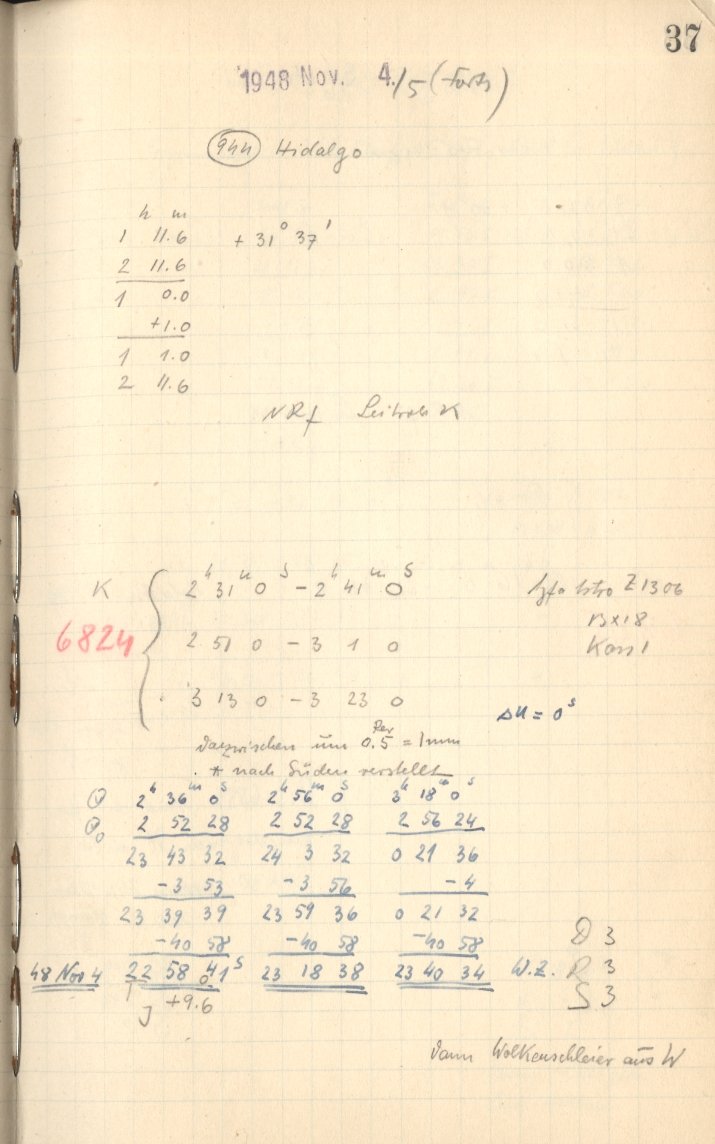 37
1948 Nov. 4./5 (Forts)
944 Hidalgo
h m
1 11.6 + 31° 37'
2 11.6
1 0.0
+1.0
1 1.0
2 11.6
NRf Leitrohr K
K 2h 31m 0s – 2h 41m 0s Agfa Astro Z 1306
6824 2 51 0 – 3 1 0 13x18
Kass 1
3 13 0 – 3 23 0
Δu = 0s
dazwischen um 0.5 Rev = 1mm
* nach Süden verstellt
Θ 2h 36m 0s 2h 56m 0s 3h 18m 0s
Θ0 2 52 28 2 52 28 2 56 24
23 43 32 24 3 32 0 21 36
–3 53 –3 56 –4
23 39 39 23 59 36 0 21 32
–40 58 –40 58 –40 58
D 3
48 Nov 4 22 58 41s 23 18 38 23 40 34 W.Z. R 3
J +9.6 S 3
dann Wolkenschleier aus W